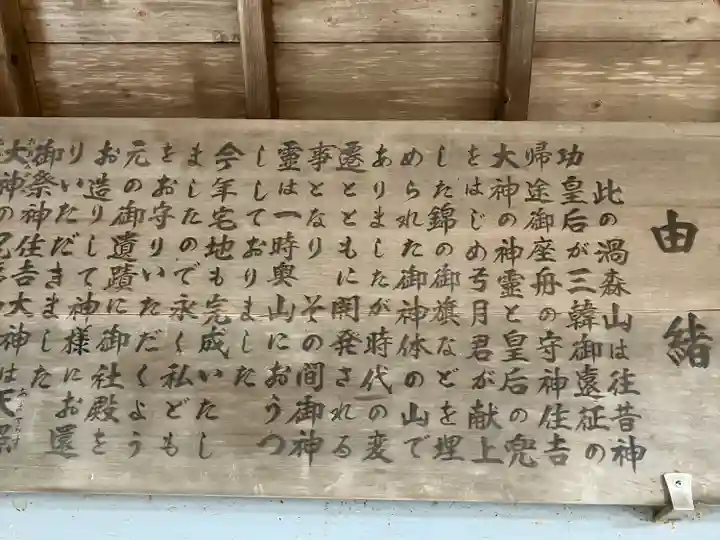 由緒
此の渦森山は往昔神
功皇后が三韓御遠征の
帰途御座舟の守神住吉
大神の神霊と皇后の兜
をはじめ弓月君が献上
した錦の御旗などを埋
められた御神体の山で
ありましたが時代の変
遷とともに開発される
事となり その間御神
霊は一時奥山におうつ
ししておりました
今年宅地も完成いたし
ましたので永く私ども
をお守りいただくよう
元の御遺蹟に御社殿を
お造りして神様にお還
りいただきました
御祭神住吉大神は天照
大神の